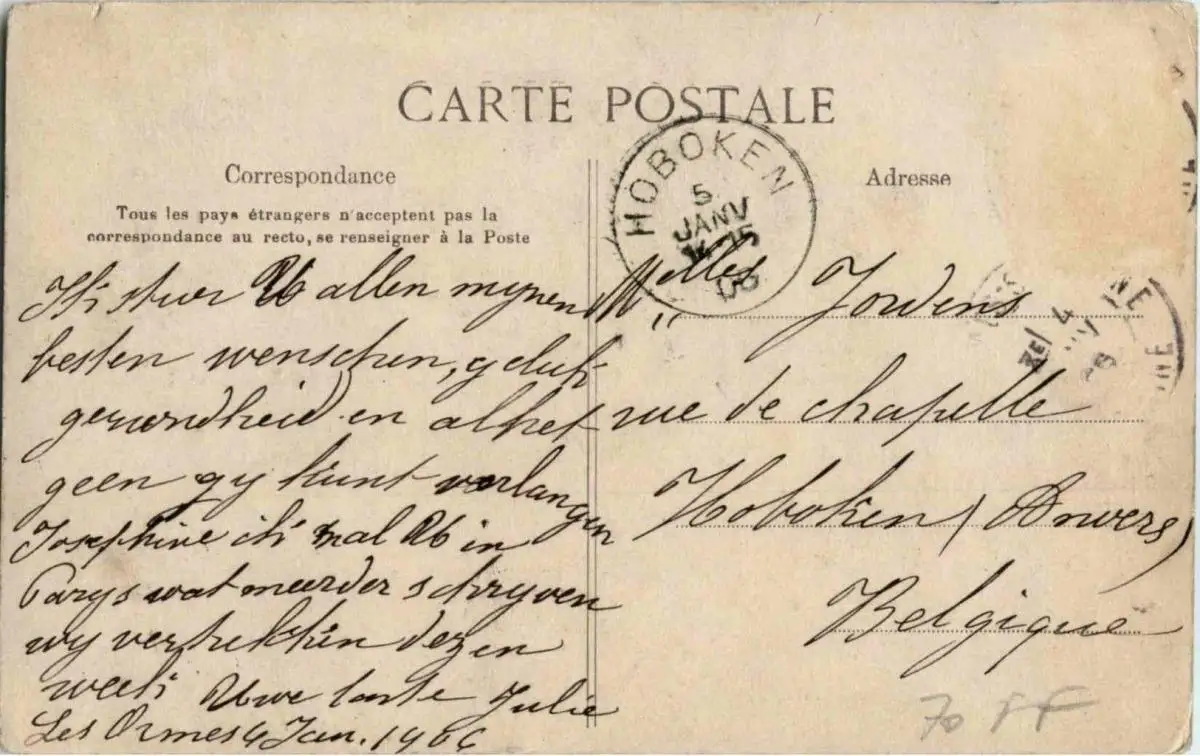 CARTE POSTALE
Correspondance
Tous les pays étrangers n'acceptent pas la
correspondance au recto, se renseigner à la Poste
Ik stuur U allen mynen
besten wenschen, geluk
gezondheid en al het
geen gy kunt verlangen
Josephine ik zal U in
Parys wat meerder schryven
wy vertrekken dezen
week Uwe tante Julie
Les Ormes 4 Jan. 1906
HOBOKEN
5
JANV
15
06
Adresse
Melles Jowens
rue de chapelle
Hoboken (Anvers)
Belgique
4
70 FF